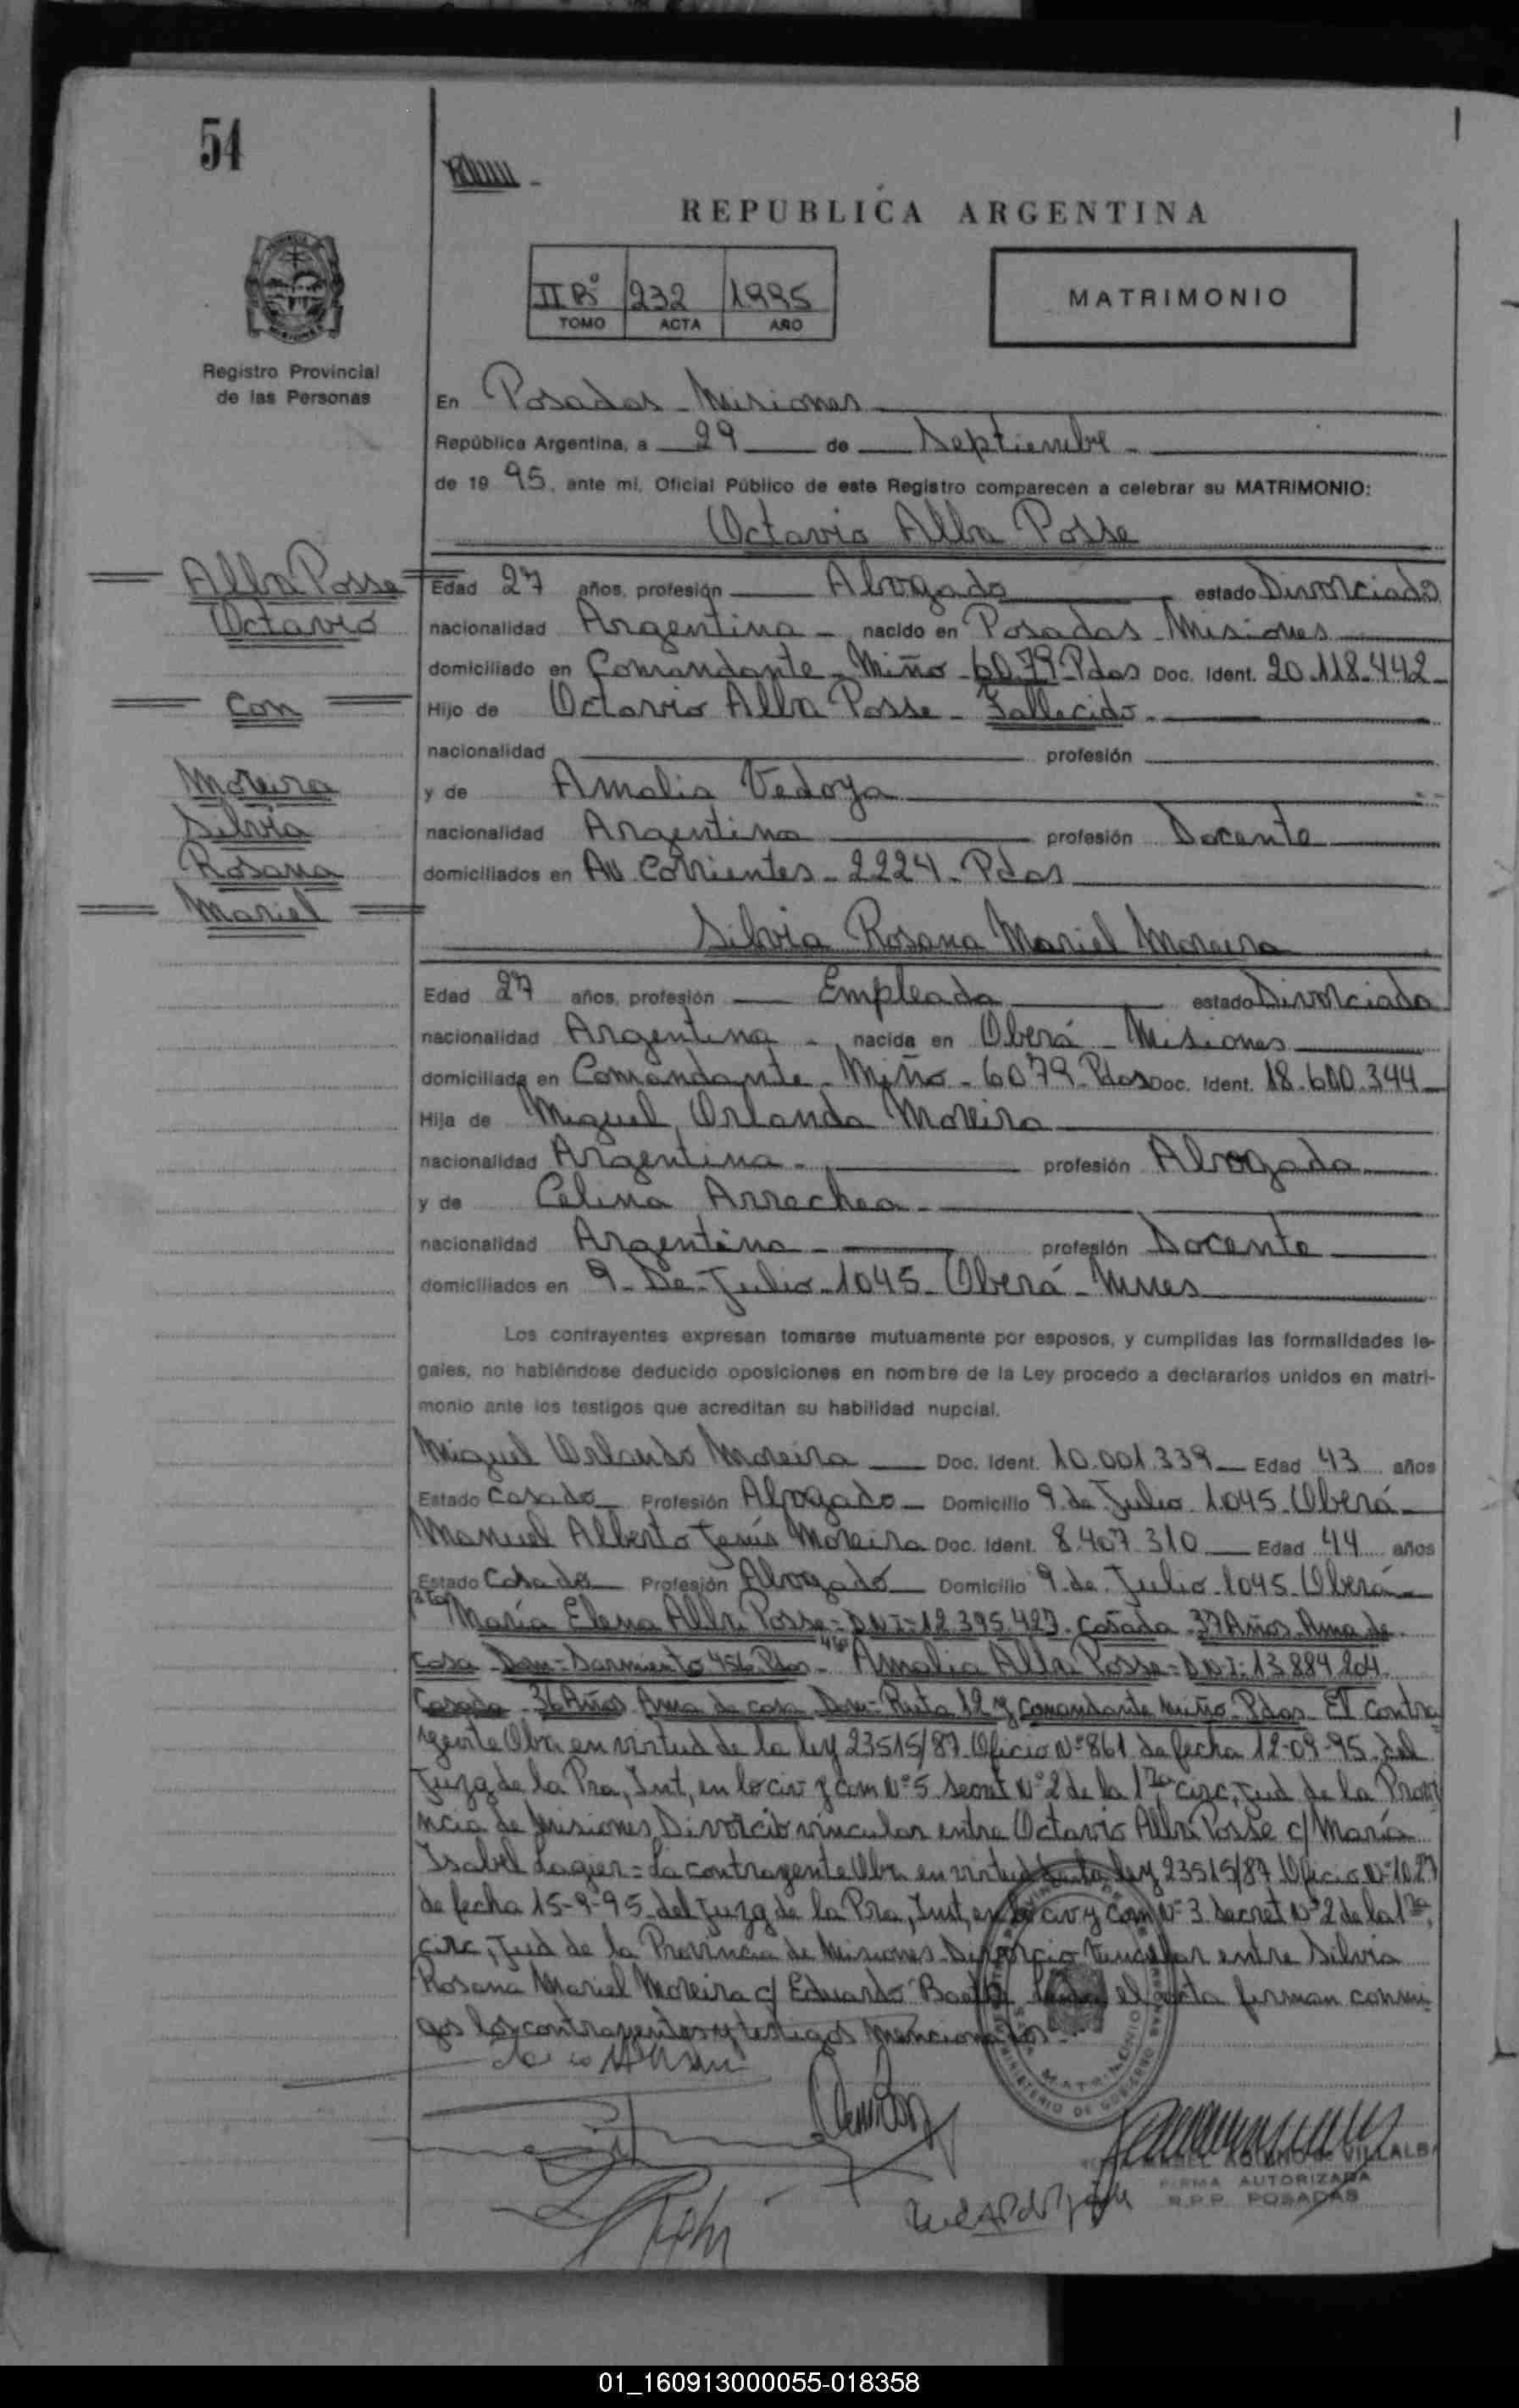 54
REPUBLICA ARGENTINA
II Bº 232 1995
TOMO ACTA AÑO
MATRIMONIO
Registro Provincial
de las Personas
En Posadas Misiones
República Argentina, a 29 de Septiembre
de 1995, ante mí, Oficial Público de este Registro comparecen a celebrar su MATRIMONIO:
Octavio Alba Posse
Alba Posse
Octavio
Con
Moreira
Silvia
Rosana
Mariel
Edad 27 años, profesión Abogado estado Divorciado
nacionalidad Argentina - nacido en Posadas Misiones
domiciliado en Comandante Miño 6079 Pdas Doc. Ident. 20.118.442
Hijo de Octavio Alba Posse - Fallecido.
nacionalidad profesión
y de Amalia Vedoya
nacionalidad Argentina profesión Docente
domiciliados en Av Corrientes - 2224 - Pdas
Silvia Rosana Mariel Moreira
Edad 27 años, profesión Empleada estado Divorciada
nacionalidad Argentina - nacida en Oberá - Misiones
domiciliada en Comandante - Miño - 6079 - Pdas Doc. Ident. 18.600.344
Hija de Miguel Orlando Moreira
nacionalidad Argentina - profesión Abogado
y de Celina Arrechea
nacionalidad Argentina - profesión Docente
domiciliados en 9 - De - Julio - 1045 - Oberá - Mnes
Los contrayentes expresan tomarse mutuamente por esposos, y cumplidas las formalidades le-
gales, no habiéndose deducido oposiciones en nombre de la Ley procedo a declararlos unidos en matri-
monio ante los testigos que acreditan su habilidad nupcial.
Miguel Orlando Moreira Doc. Ident. 10.001.339 Edad 43 años
Estado Casado Profesión Abogado Domicilio 9 de Julio 1045 Oberá
Manuel Alberto Jesús Moreira Doc. Ident. 8.407.310 Edad 44 años
Estado Casado Profesión Abogado Domicilio 9 de Julio 1045 Oberá
María Elena Alba Posse = DNI = 12.395.427 - Casada - 37 Años - Ama de
casa - Dom = Sarmiento 456 Pdas - 4to Amalia Alba Posse = DNI = 13.884.204
Casada - 36 Años Ama de casa Dom = Ruta 12 y Comandante Miño - Pdas - El contra
yente Obra en virtud de la ley 23515/87 Oficio Nº 861 de fecha 12-09-95 del
Juzg de la Pra, Inst, en lo civ y Com Nº 5 Secret Nº 2 de la 1ra circ, Jud de la Provi
ncia de Misiones Divorcio vincular entre Octavio Alba Posse c/ María
Isabel Lagier = La contrayente Obra en virtud de la ley 23515/87 Oficio Nº 1027
de fecha 15-9-95 del Juzg de la Pra, Inst, en lo civ y Com Nº 3 Secret Nº 2 de la 1ra
circ, Jud de la Provincia de Misiones Divorcio Vincular entre Silvia
Rosana Mariel Moreira c/ Eduardo el acta firman conmi
gos los contrayentes y testigos mencionados
MATRIMONIO
MINISTERIO DE GOBIERNO
AQUINO de VILLALBA
FIRMA AUTORIZADA
R.P.P. POSADAS
01_160913000055-018358